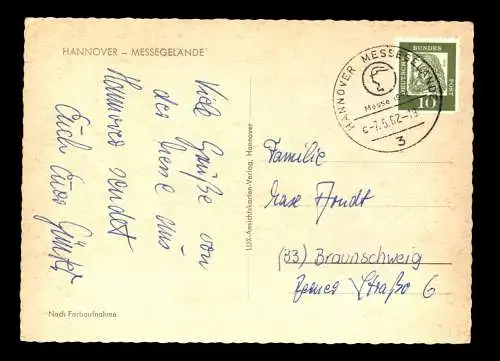 HANNOVER – MESSEGELÄNDE
Viele Grüße von
der Messe aus
Hannover sendet
Euch Euer Günter
Nach Farbaufnahme
LUX-Ansichtskarten-Verlag, Hannover
HANNOVER MESSEGELÄNDE
Messe
-7.5.62-19
3
DEUTSCHE BUNDESPOST
10
Familie
Max Arndt
(33) Braunschweig
Straße 6